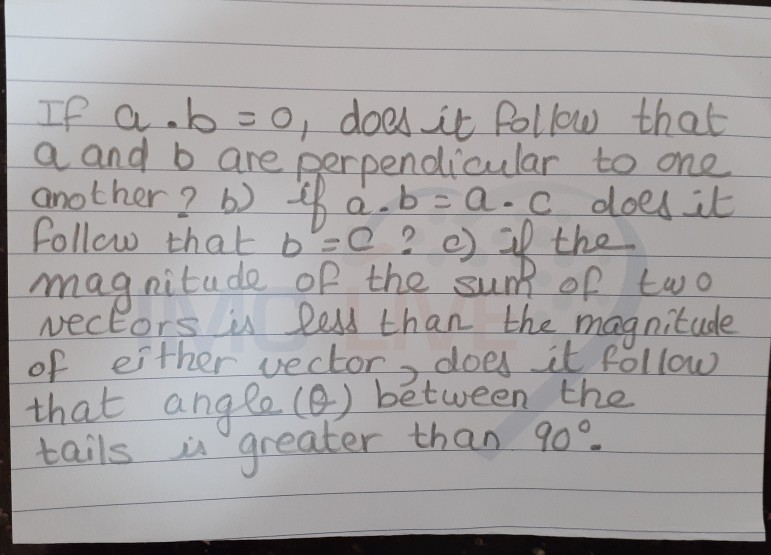 If a.b = 0, does it follow that
a and b are perpendicular to one
another? b) if a.b = a.c does it
follow that b = c ? c) if the
magnitude of the sum of two
vectors is less than the magnitude
of either vector, does it follow
that angle (θ) between the
tails is greater than 90°.
LIVE